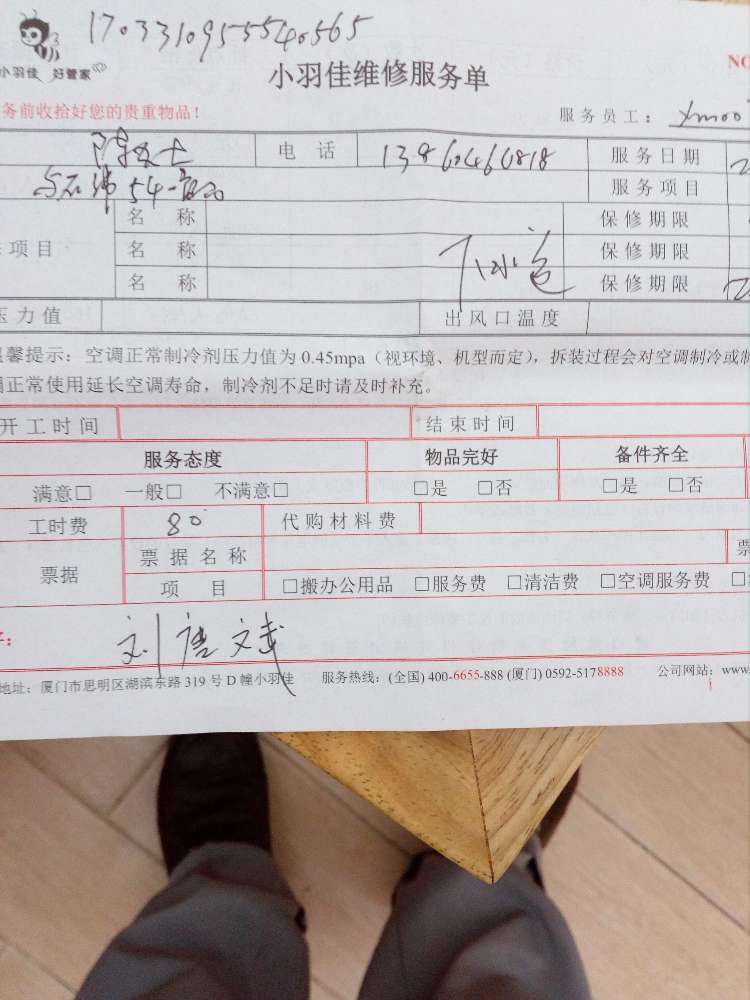 1703310955540565
小羽佳 好管家
小羽佳维修服务单
NO
务前收拾好您的贵重物品！
服务员工：
陈女士 电 话 13860460818 服务日期
54 服务项目
名 称 保修期限
项目 名 称 下水道 保修期限
名 称 保修期限
压力值 出风口温度
馨提示：空调正常制冷剂压力值为 0.45mpa（视环境、机型而定），拆装过程会对空调制冷或制
正常使用延长空调寿命，制冷剂不足时请及时补充。
开工时间 结束时间
服务态度 物品完好 备件齐全
满意□ 一般□ 不满意□ □是 □否 □是 □否
工时费 80 代购材料费
票据 票据名称 票
项 目 □搬办公用品 □服务费 □清洁费 □空调服务费
刘唐文武
地址：厦门市思明区湖滨东路 319 号 D 幢小羽佳 服务热线：(全国) 400-6655-888 (厦门) 0592-5178888 公司网站：www.